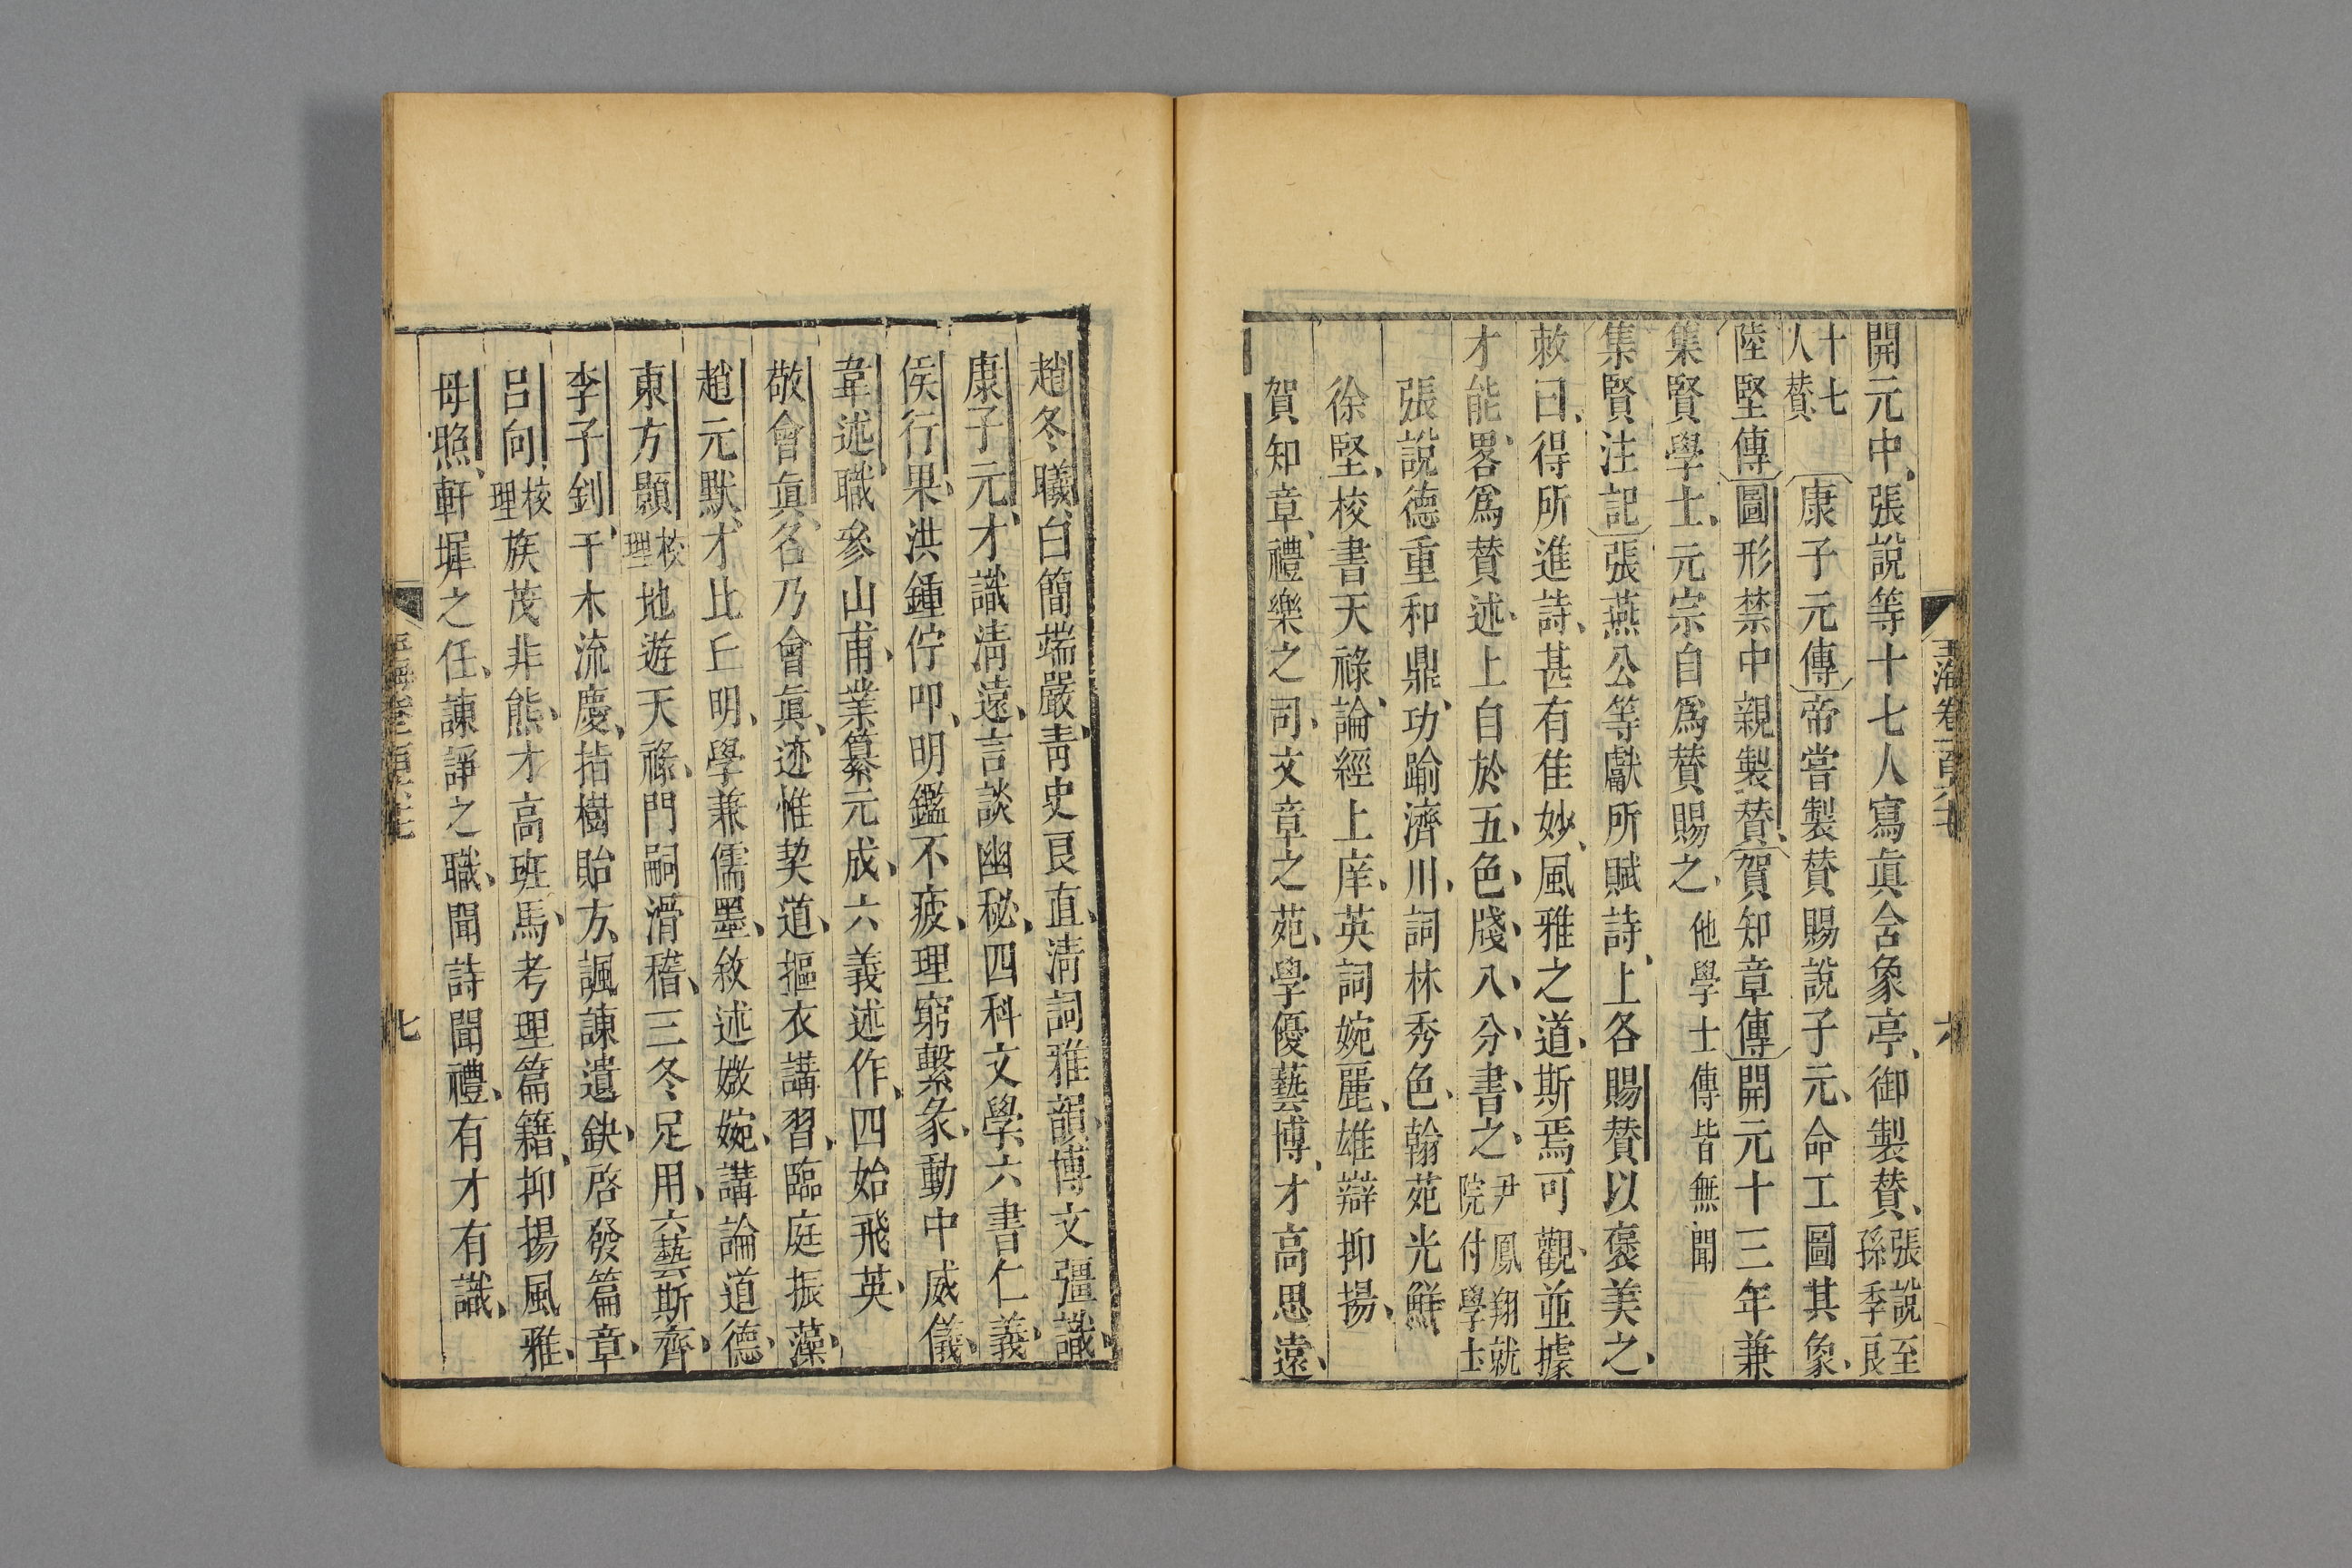 開元中、張說等十七人寫眞含象亭、御製贊、張說至孫季良
十七人贊、康子元傳帝嘗製贊賜說子元、命工圖其象、
陸堅傳圖形禁中親製贊、賀知章傳開元十三年兼
集賢學士、元宗自爲贊賜之、他學士傳皆無聞
集賢注記張燕公等獻所賦詩、上各賜贊以褒美之、
敕曰、得所進詩、甚有佳妙、風雅之道、斯焉可觀、並據
才能、畧爲贊述、上自於五、色、牋、八、分、書、之、尹鳳翔就院付學士
張說德重和鼎、功踰濟川、詞林秀色、翰苑光鮮、
徐堅、校書天祿、論經上庠、英詞婉麗、雄辯抑揚、
賀知章、禮樂之司、文章之苑、學優藝博、才高思遠、
玉海卷
六
趙冬曦、白簡端嚴、靑史良直、淸詞雅韻、博文彊識、
康子元、才識淸遠、言談幽秘、四科文學、六書仁義、
侯行果、洪鍾佇叩、明鑑不疲、理窮繫象、動中威儀、
韋述、職參山甫、業纂元成、六義述作、四始飛英、
敬會眞、名乃會眞、迹惟契道、摳衣講習、臨庭振藻、
趙元默、才比丘明、學兼儒墨、敘述媺婉、講論道德、
東方顥校理地遊天祿、門嗣滑稽、三冬足用、六藝斯齊、
李子釗、干木流慶、指樹貽方、諷諫遺鈌、啓發篇章、
呂向、校理族茂非熊、才高班馬、考理篇籍、抑揚風雅、
毋煚、軒墀之任、諫諍之職、聞詩聞禮、有才有識、
七